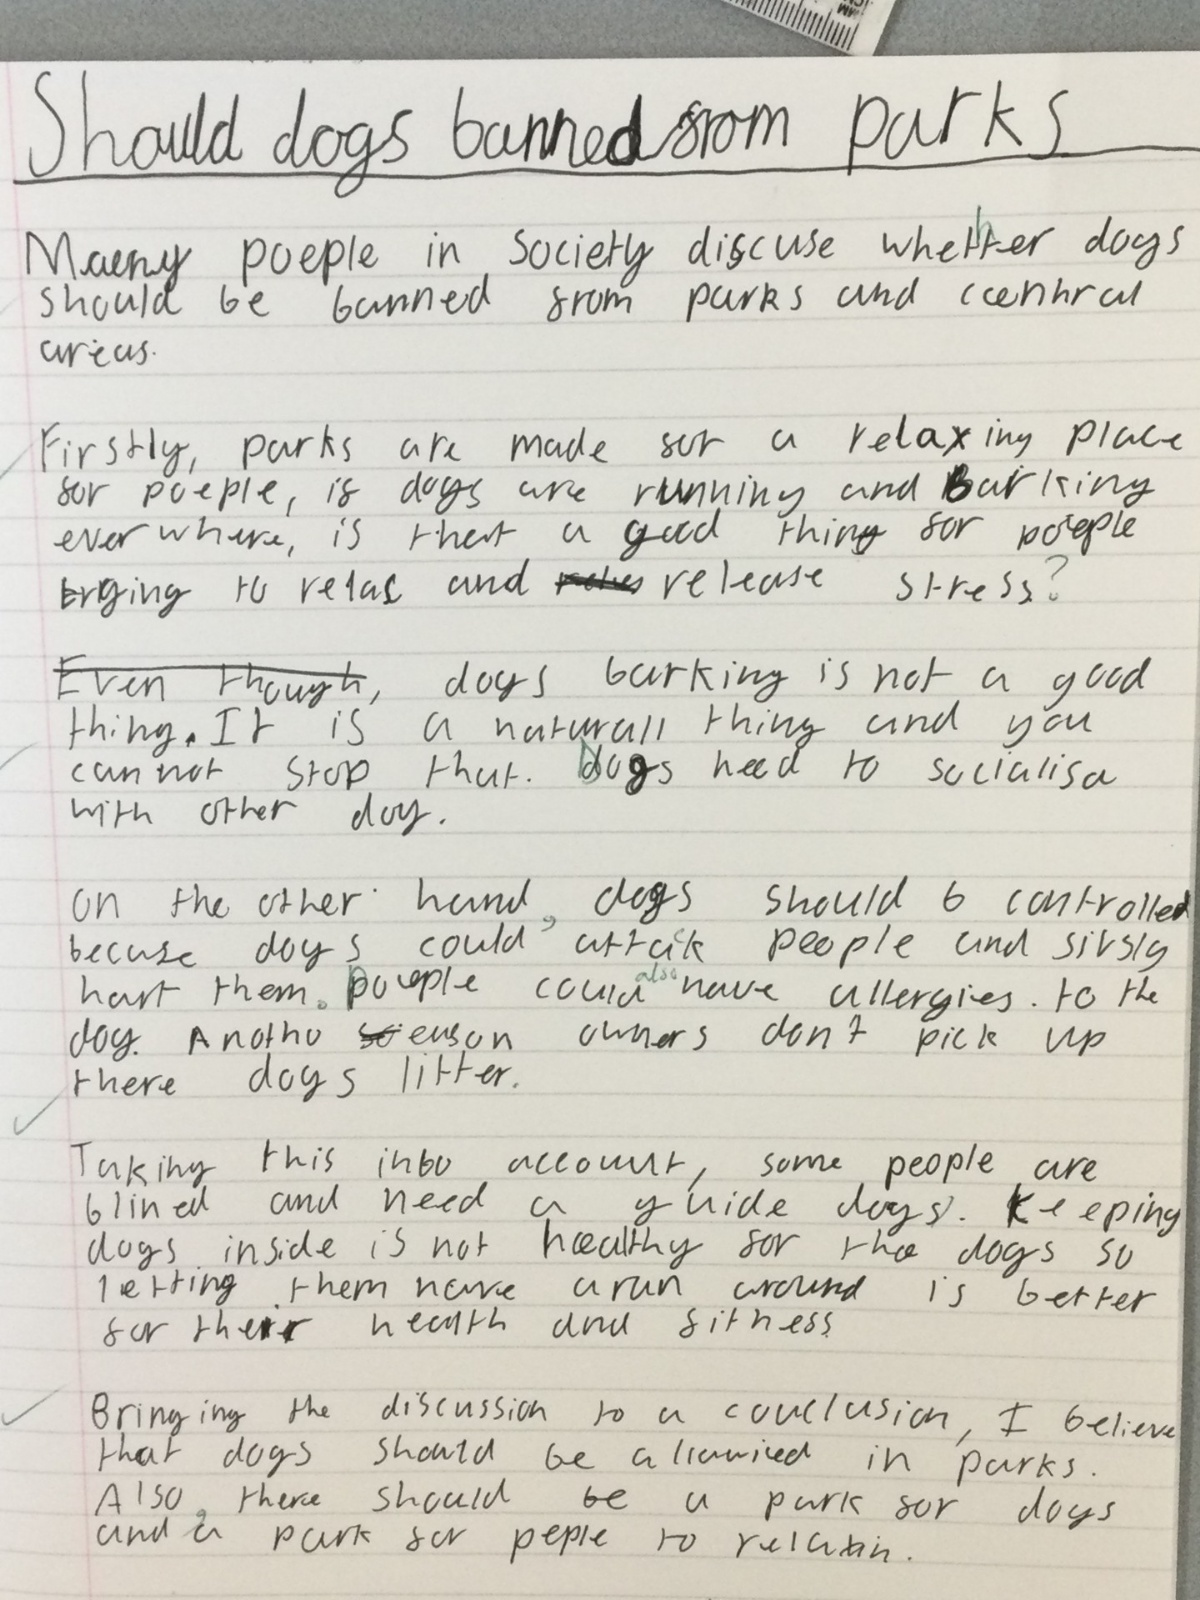 Should dogs banned from parks
Maeny poeple in society discuse whether dogs
should be banned from parks and centhral
areas.
Firstly, parks are made for a relaxing place
for poeple, if dogs are running and Barking
everwhere, is that a good thing for poeple
trying to relax and release stress?
Even though, dogs barking is not a good
thing. It is a naturall thing and you
cannot stop that. Dogs need to socialisa
with other dog.
On the other hand, dogs should b controlled
becuse dogs could attack people and
hart them. people could also have allergies. to the
dog. Anotho reason owners don't pick up
there dogs litter.
Taking this into account, some people are
blined and need a guide dogs. Keeping
dogs inside is not healthy for the dogs so
letting them have a run around is better
for their health and fitness
Bringing the discussion to a conclusion, I believe
that dogs should be allowied in parks.
Also, there should be a park for dogs
and a park for peple to relaxin.